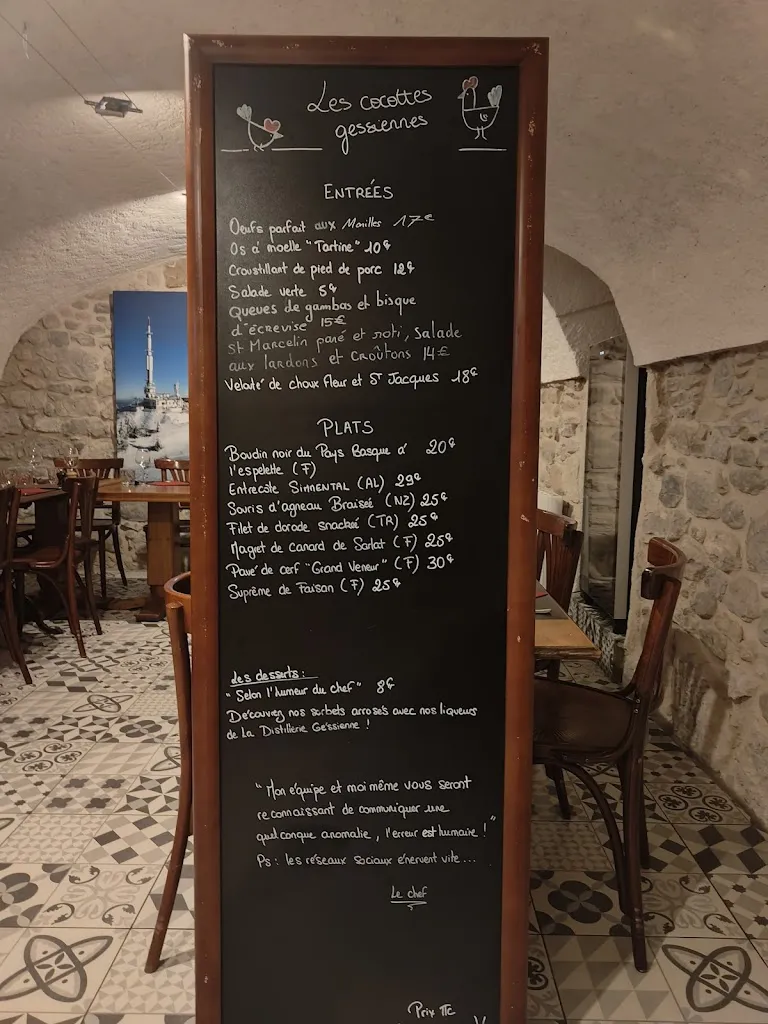 Les cocottes
gessiennes
ENTRÉES
Oeufs parfait aux Morilles 17€
Os à moelle "Tartine" 10€
Croustillant de pied de porc 12€
Salade verte 5€
Queues de gambas et bisque
d'écrevise 15€
St Marcelin pané et roti, Salade
aux lardons et croûtons 14€
Velouté de choux fleur et ST Jacques 18€
PLATS
Boudin noir du Pays Basque à 20€
l'espelette (F)
Entrecôte SIMMENTAL (AL) 29€
Souris d'agneau Braiseé (NZ) 25€
Filet de dorade snackée (TR) 25€
Magret de canard de Sarlat (F) 25€
Pavé de cerf "Grand Veneur" (F) 30€
Suprême de Faisan (F) 25€
des desserts:
"Selon l'humeur du chef" 8€
Découvrez nos sorbets arrosés avec nos liqueurs
de La Distillerie Géssienne !
"Mon équipe et moi même vous seront
reconnaissant de communiquer une
quelconque anomalie, l'erreur est humaine !"
Ps : les réseaux sociaux énervent vite...
Le chef
Prix TTC